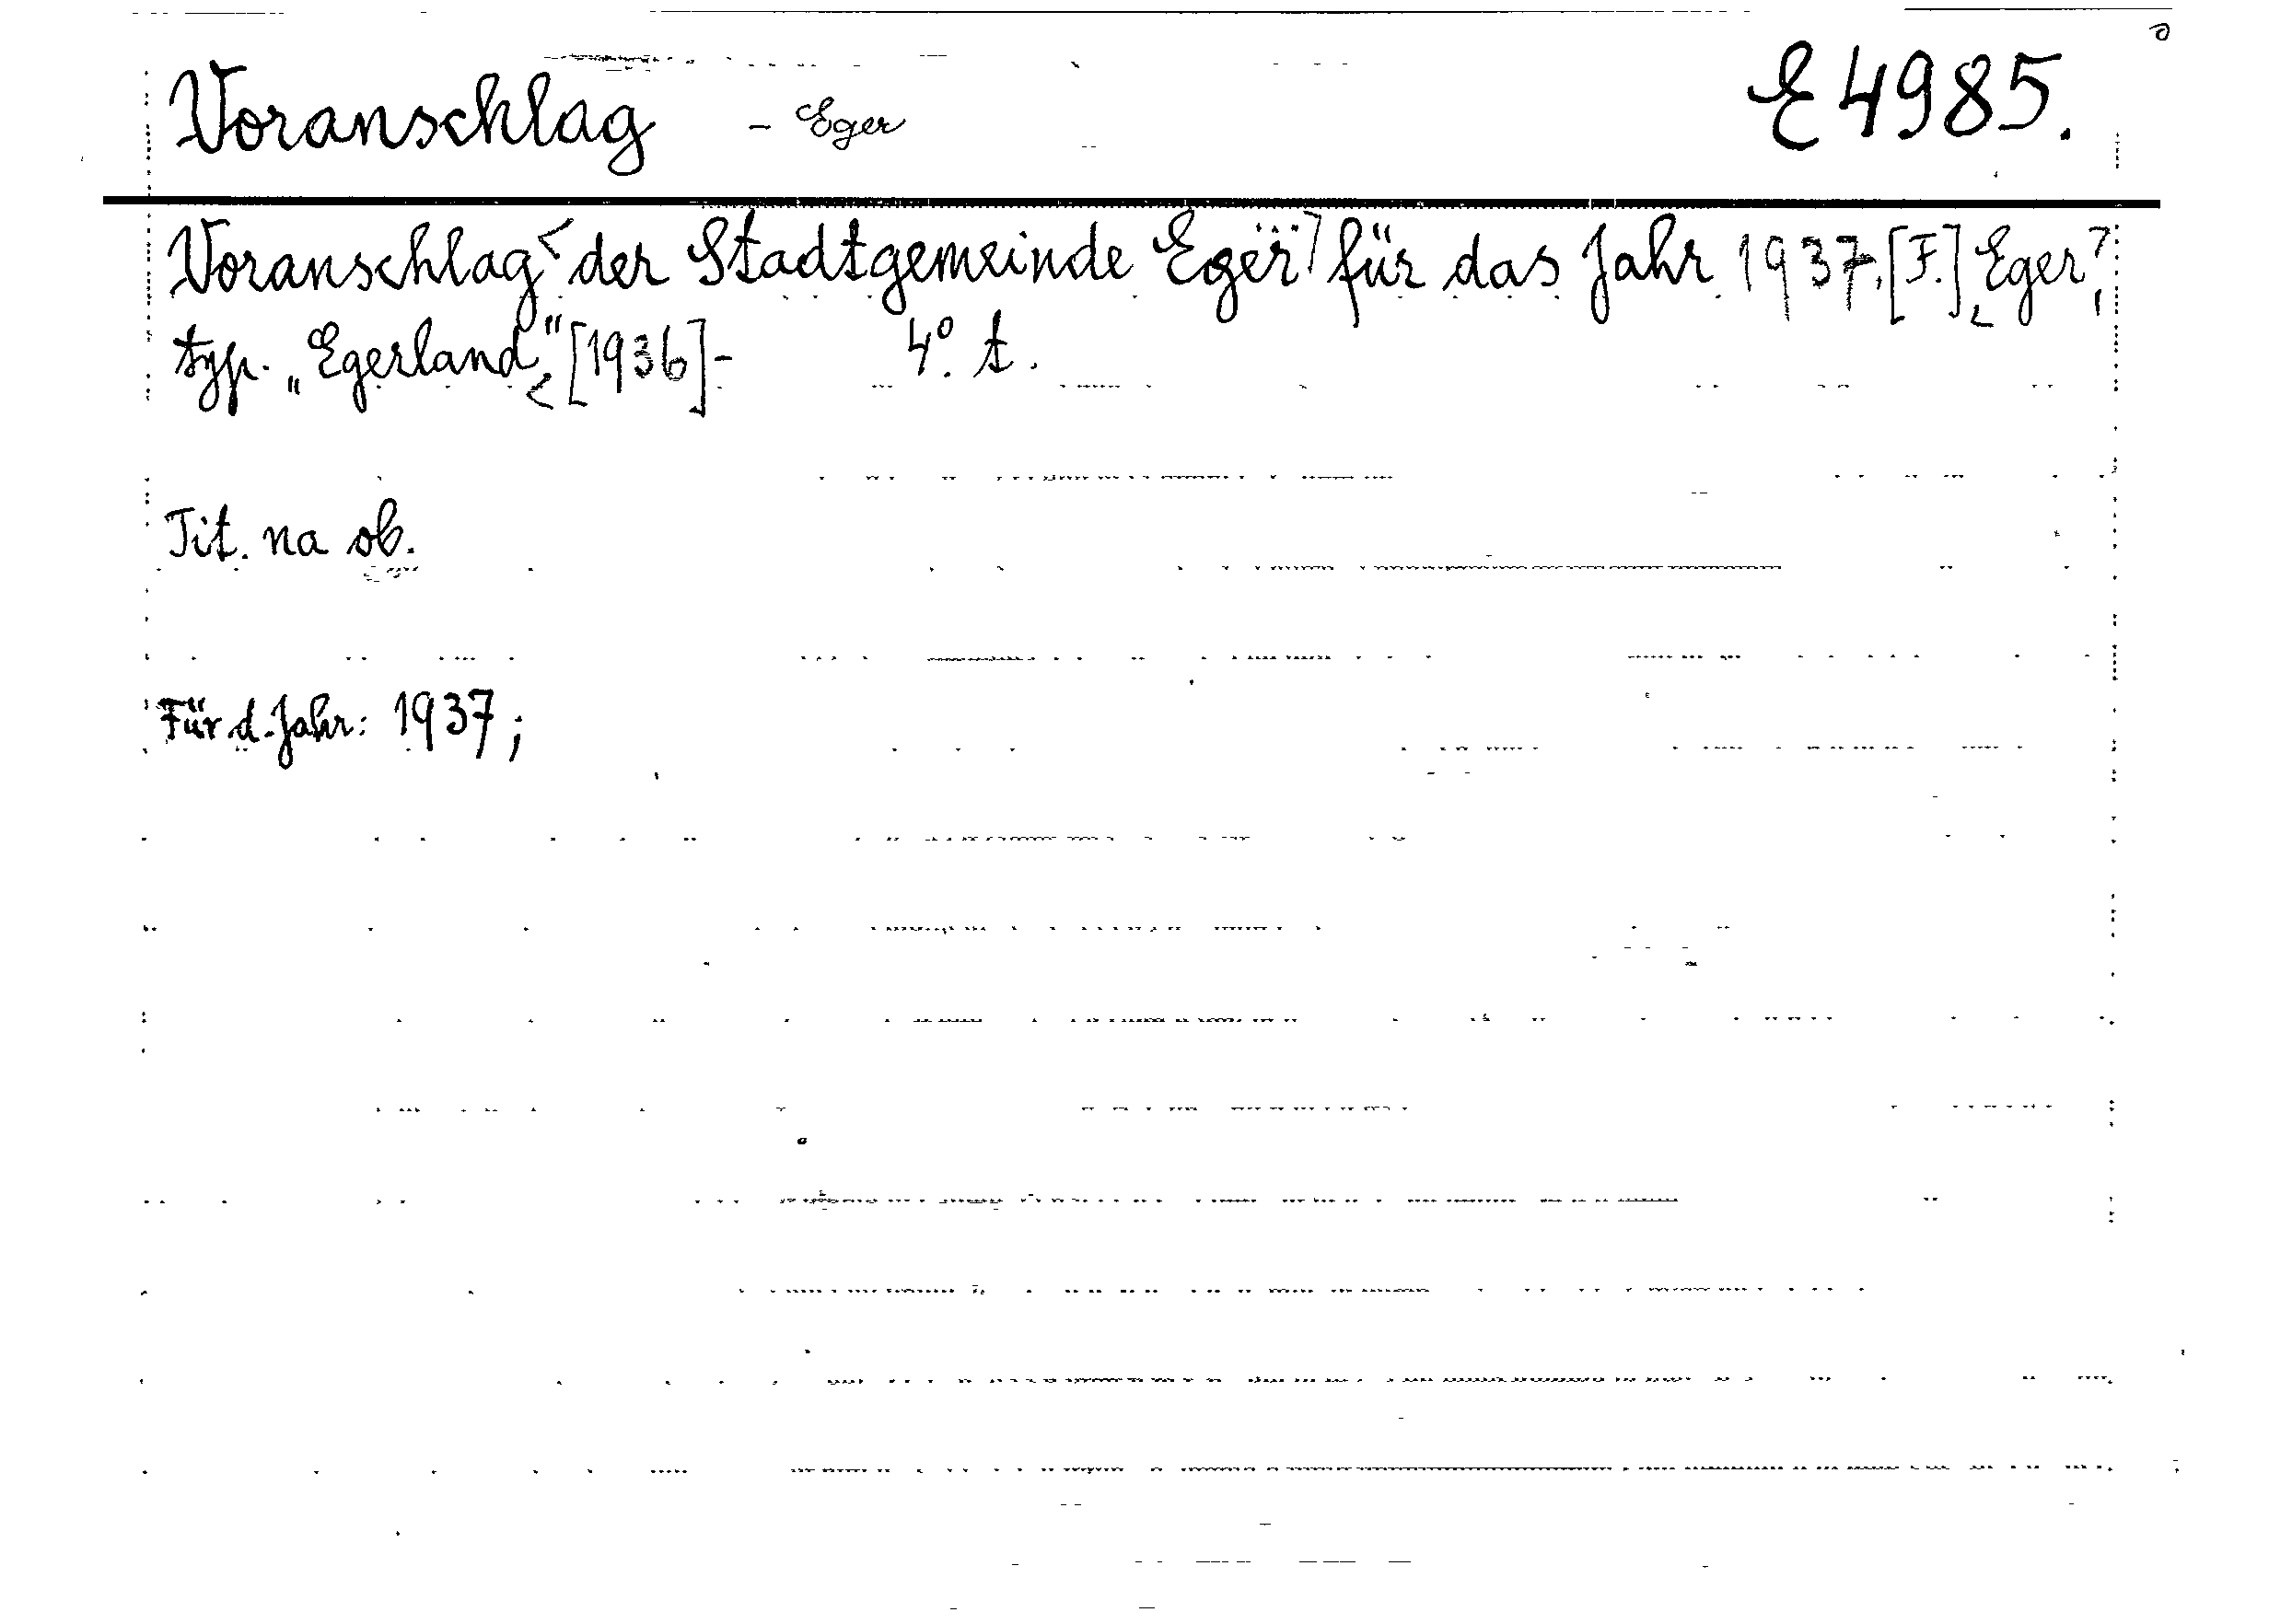 Voranschlag - Eger E 4985.
Voranschlag < der Stadtgemeinde Eger > für das Jahr 1937. [F.] Eger,
typ. „Egerland“, [1936]- 4°. t.
Tit. na ob.
Für d. Jahr: 1937;